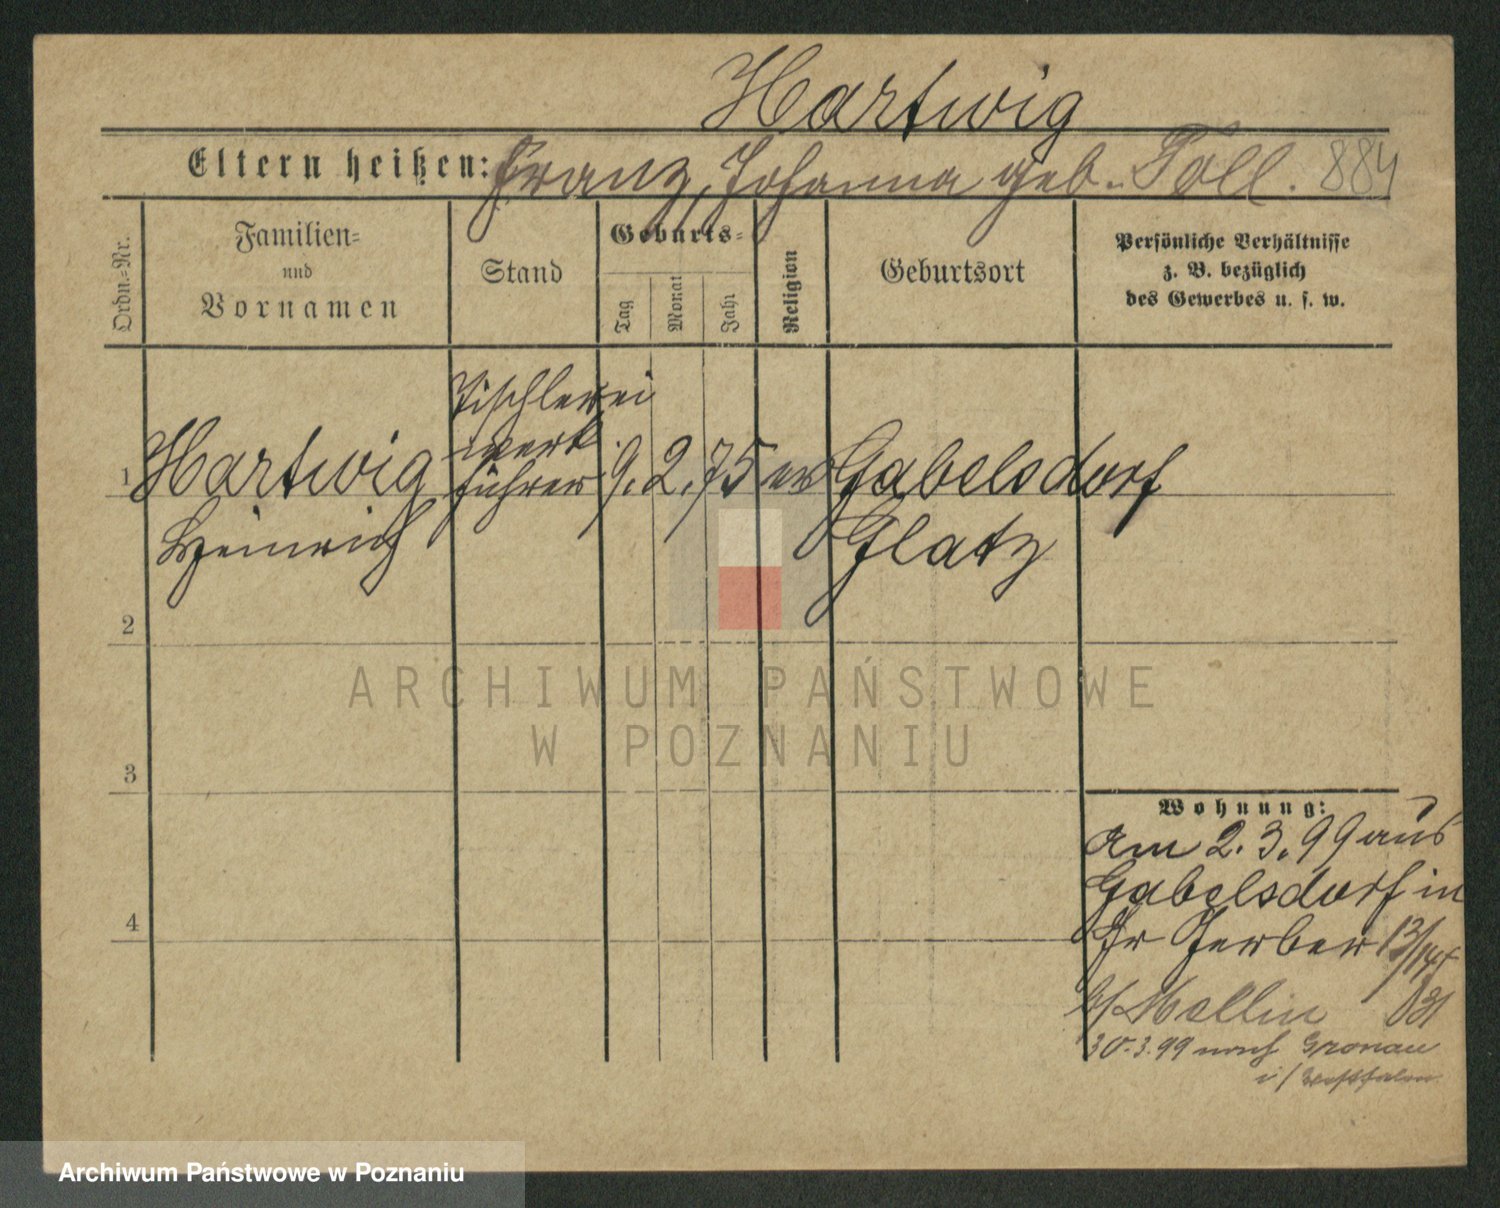 Hartwig
Eltern heißen: Franz, Johanna geb. Toll. 884
Ordn.-Nr.
Familien-
und
Vornamen
Stand
Geburts-
Tag
Monat
Jahr
Religion
Geburtsort
Persönliche Verhältnisse
z. B. bezüglich
des Gewerbes u. s. w.
Tischlerei
werk
1 Hartwig führer 9. 2. 75 ev Gabelsdorf
Heinrich Glatz
2
ARCHIWUM PAŃSTWOWE
W POZNANIU
3
Wohnung:
am 2. 3. 99 aus
Gabelsdorf in
4
Gr Gerber 13/14
b/ Mellin
30.3.99 nach Gronau
i/ Westfalen
Archiwum Państwowe w Poznaniu